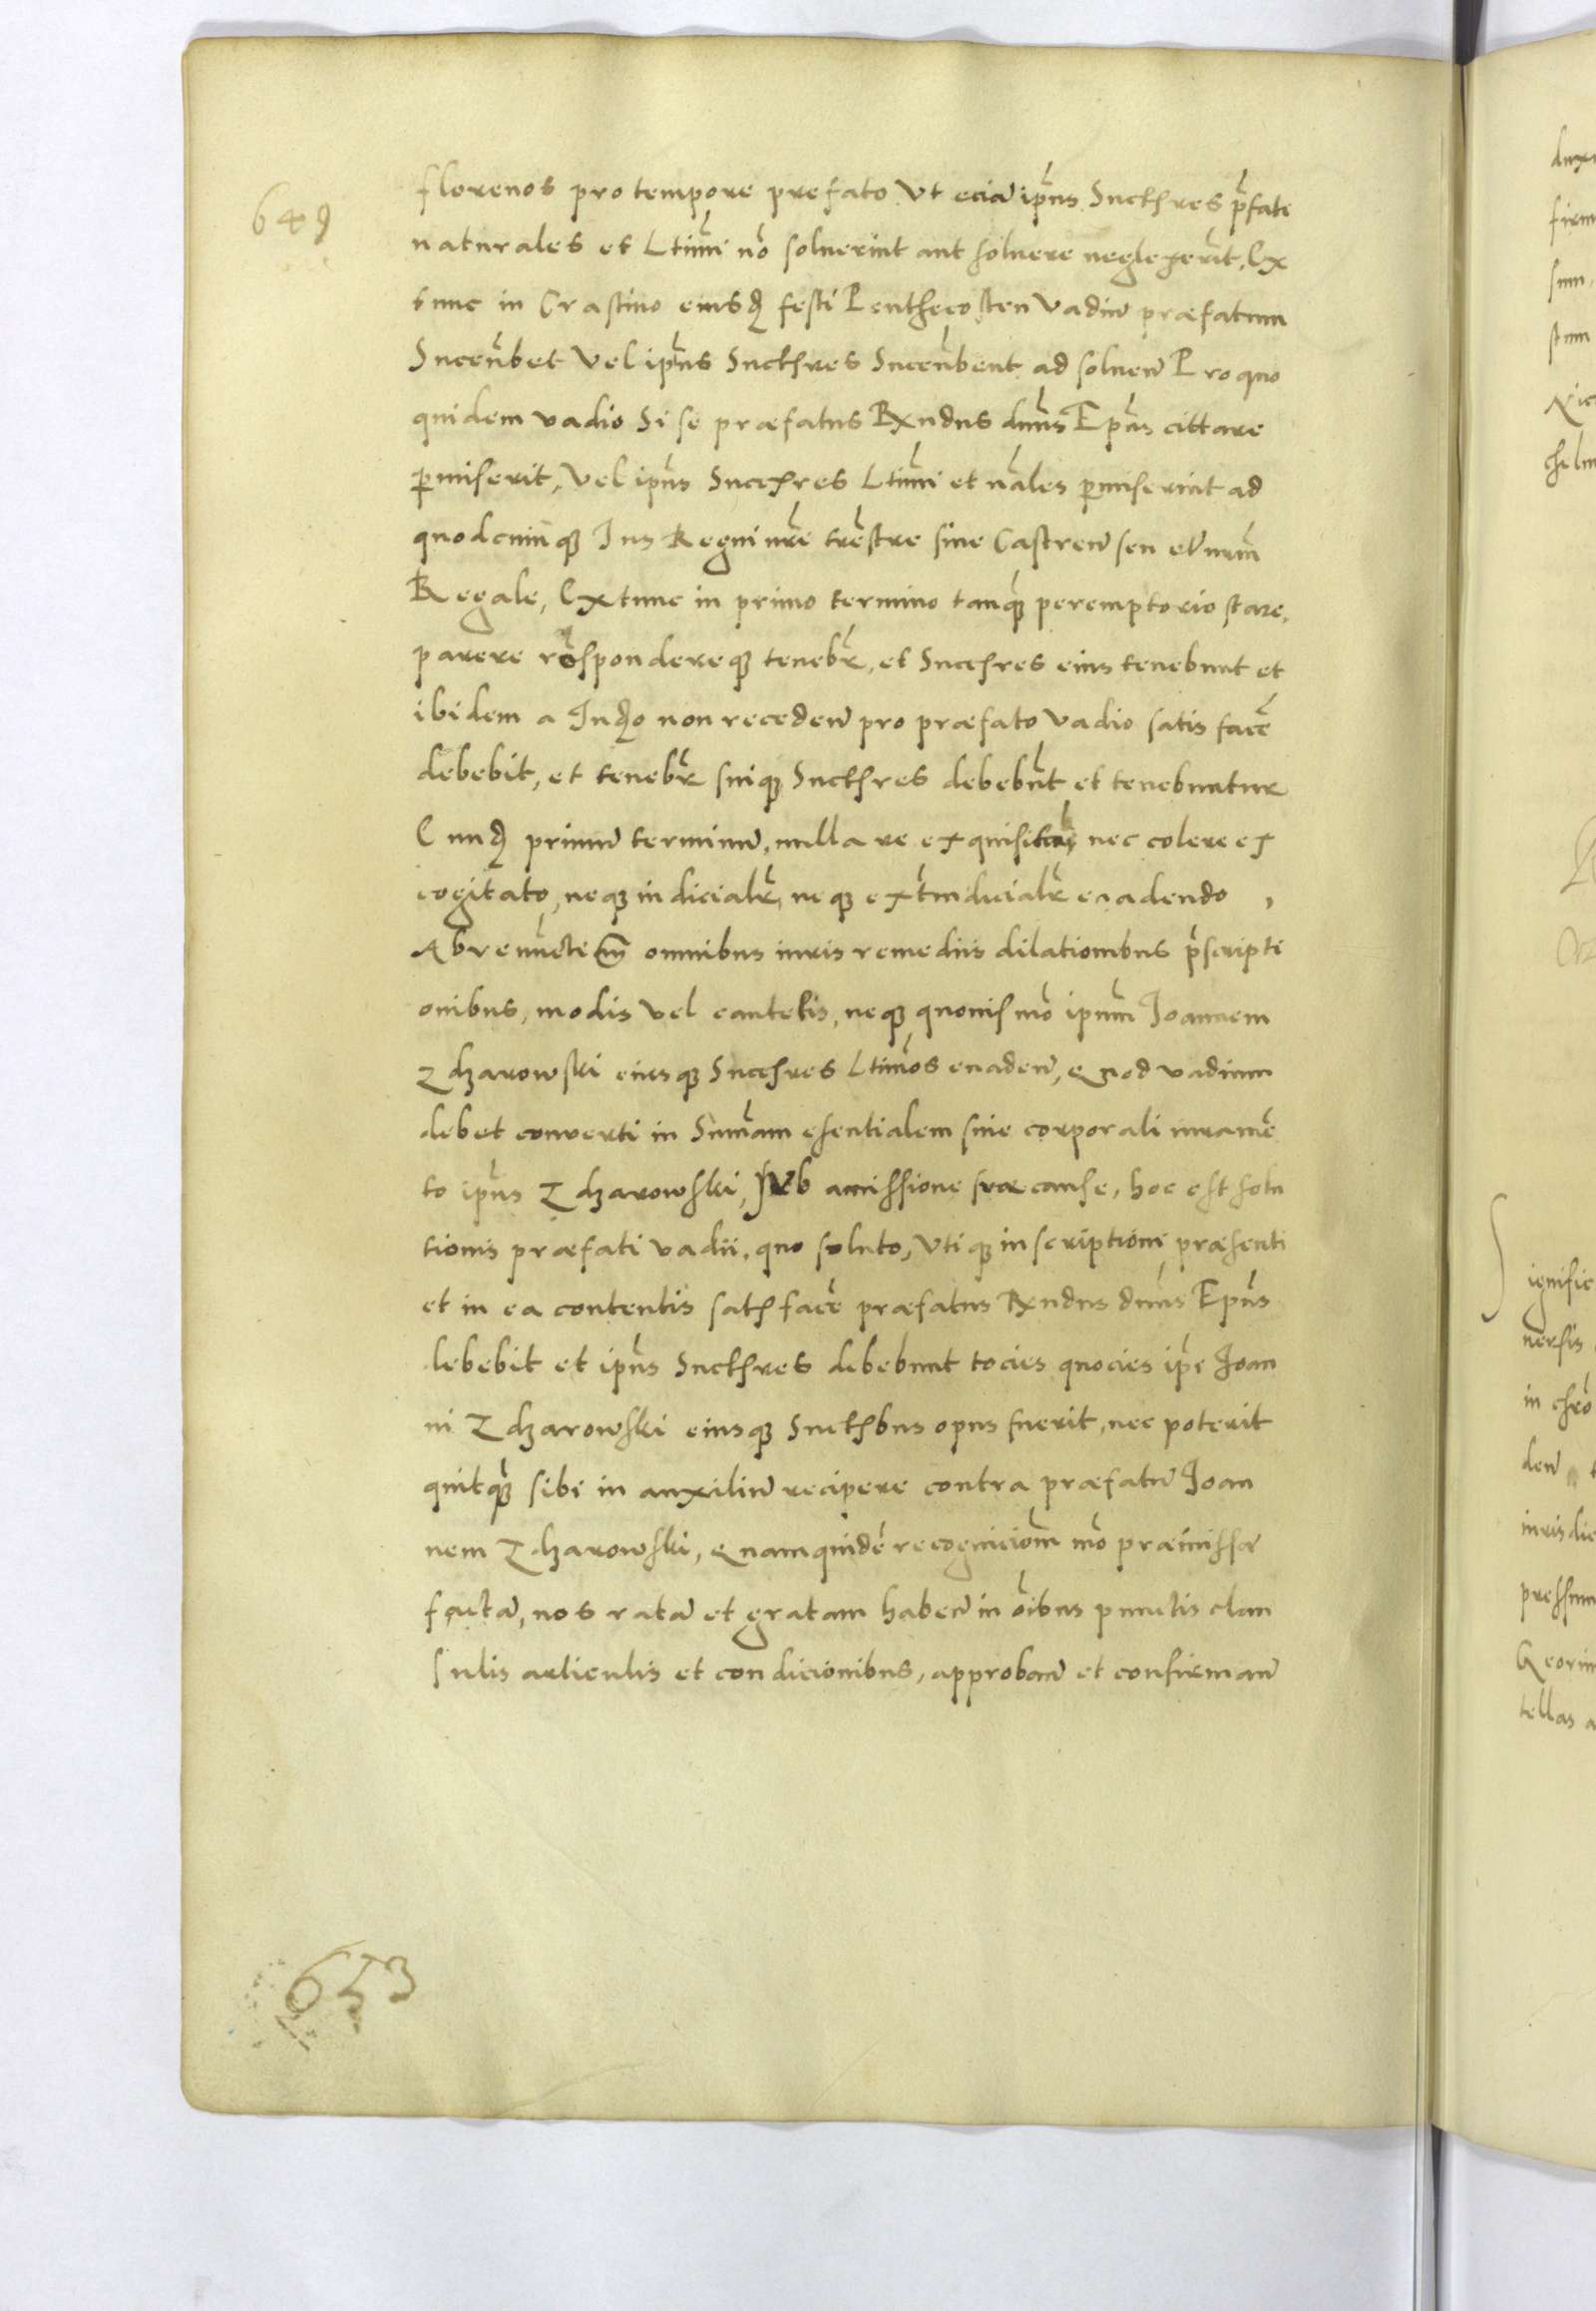 649
florenos pro tempore prefato Vt eciā ip̄ius Succħres p̄fati
naturales et Ltimi̅ nō soluerint aut soluere neglexer̄it, Ex
tunc in Crastino eiusđ festi Penthecosten Vadiū præfatum
Succu̅bet Vel ip̄ius Succħres Succu̅bent ad soluen̄ Pro quo
quidem vadio Si se præfatus Rx̄ndus dn̄us Ep̄us cittare
ꝑmiserit, Vel ip̄ius Succħres Ltimi̅ et n̄ales ꝑmiserint ad
quodcunqꝫ Ius Regni nr̄e trēstre siue Castren̄ seu et̄ nrm̄
Regale, Ex tunc in primo termino tanqꝫ peremptorio stare,
parere respondereqꝫ tenebr̄, et Succħres eius tenebunt et
ibidem a Iudo non receden̄ pro præfato Vadio satis facē
debebit, et tenebr̄ suiqꝫ Succħres debebūt et tenebuntur
Eundꝫ primū terminū, nulla re exquisita, nec colere ex
cogitato, neqꝫ iudicialr̄, neqꝫ extraiudicialr̄ euadendo,
Abrenūcten̄ omnibus iuris remediis dilationibus p̄scripti
onibus, modis Vel cautelis, neqꝫ quouis mō ipum̄ Joannem
Zdzarowski eiusqꝫ Succħres Ltimos euaden̄, Quod vadium
debet conuerti in Sum̄am esentialem sine corporali iuramē
to ip̄ius Zdzarowski, sub amissione suæ cause, hoc est solu
tionis præfati vadii, quo soluto, Vtiqꝫ inscriptioni præsenti
et in ea contentis satisfacē præfatus Rx̄ndus dn̄us Ep̄us
debebit et ip̄ius Succħres debebunt tocies quocies ip̄e Joan
ni Zdzarowski eiusqꝫ Succħbus opus fuerit, nec poterit
quitqꝫ sibi in auxiliū recipere contra præfatū Joan
nem Zdzarowski, Quam quidē recognicion̄ mō præmisso
factā, nos ratā et gratam haben̄ in oībus punctis clau
sulis articulis et condicionibus, approban̄ et confirman̄
653